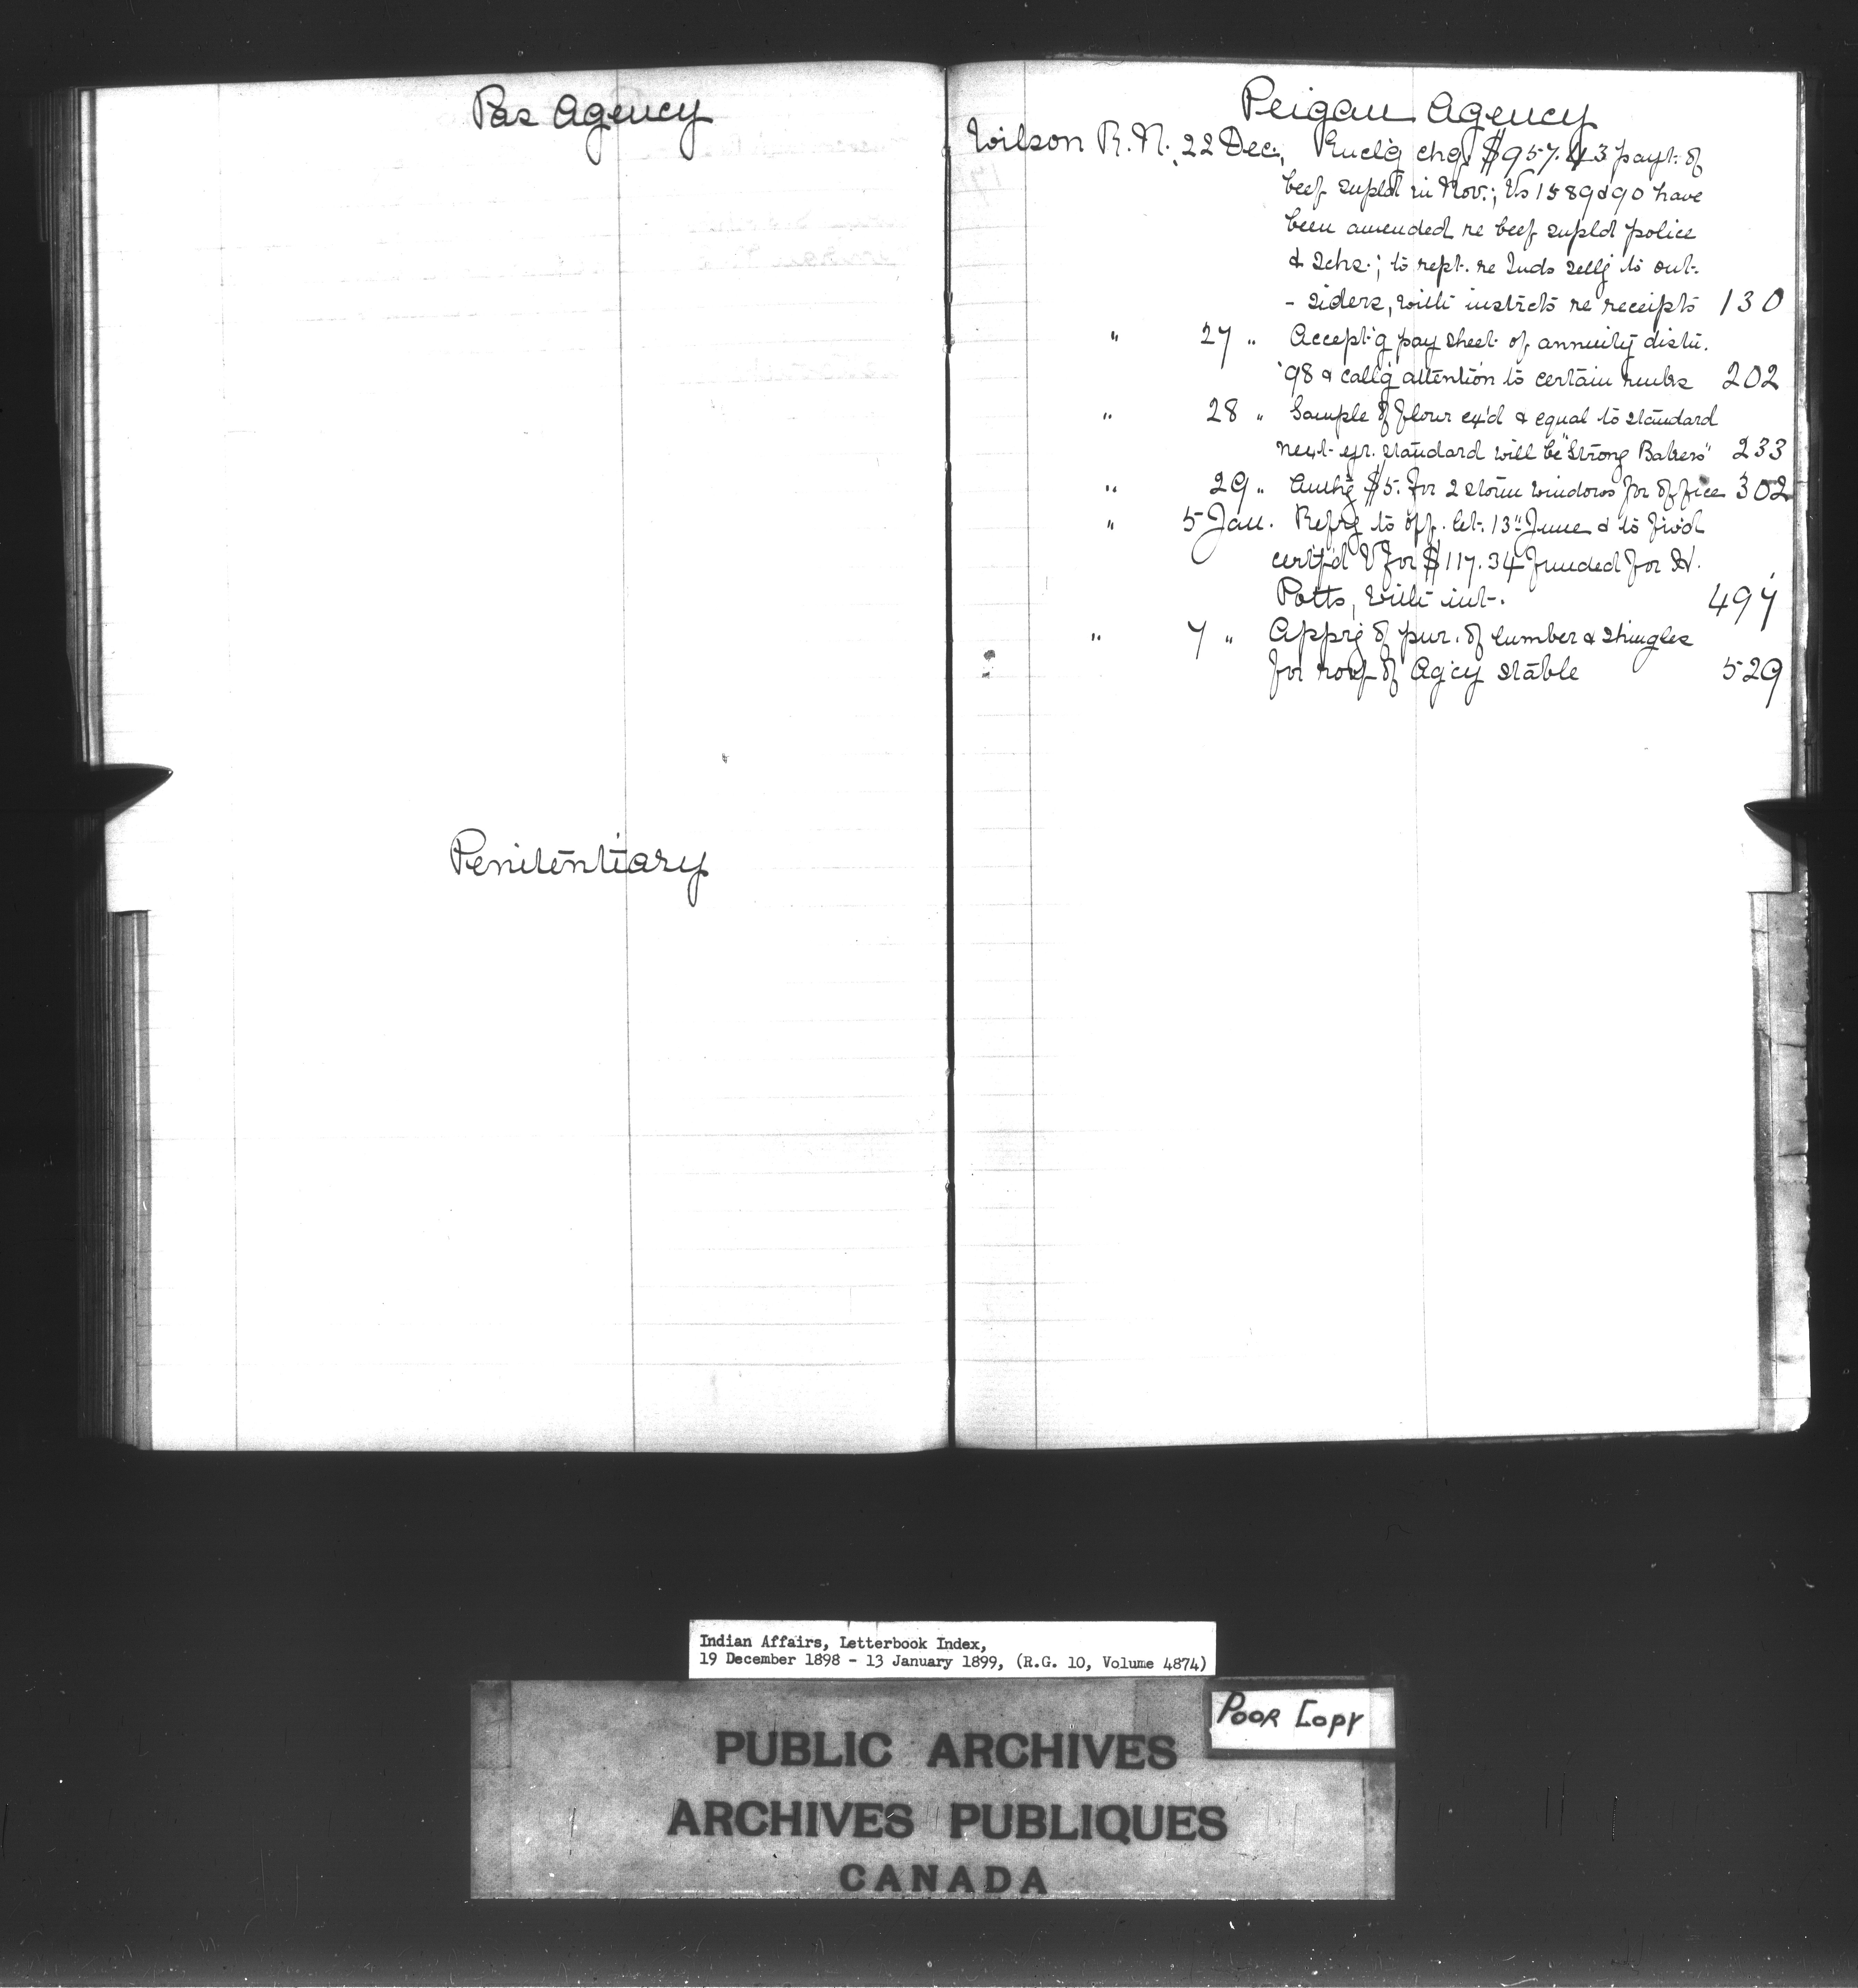 Pas Agency
Penitentiary
Peigan Agency
Wilson R.N. 22 Dec. Enclg chq. $957.43 payt. of
beef supld in Nov.; Vs 1589 & 90 have
been amended re beef supld police
& schs.; to rept. re Inds sellg to out-
- siders, with instrcts re receipts 130
" 27 " Accept'g pay sheet of annuity distri.
'98 & callg attention to certain numbs 202
" 28 " Sample of flour ex'd & equal to standard
next yr. standard will be "Strong Bakers" 233
" 29 " Authg $5. for 2 storm windows for office 302
" 5 Jan. Refrg to off. let. 13" June & to fwd
certf'd V for $117.34 funded for
Potts, with int. 497
" 7 " Apprg of pur. of lumber & shingles
for roof of Agcy stable 529
Indian Affairs, Letterbook Index,
19 December 1898 - 13 January 1899, (R.G. 10, Volume 4874)
Poor Copy
PUBLIC ARCHIVES
ARCHIVES PUBLIQUES
CANADA